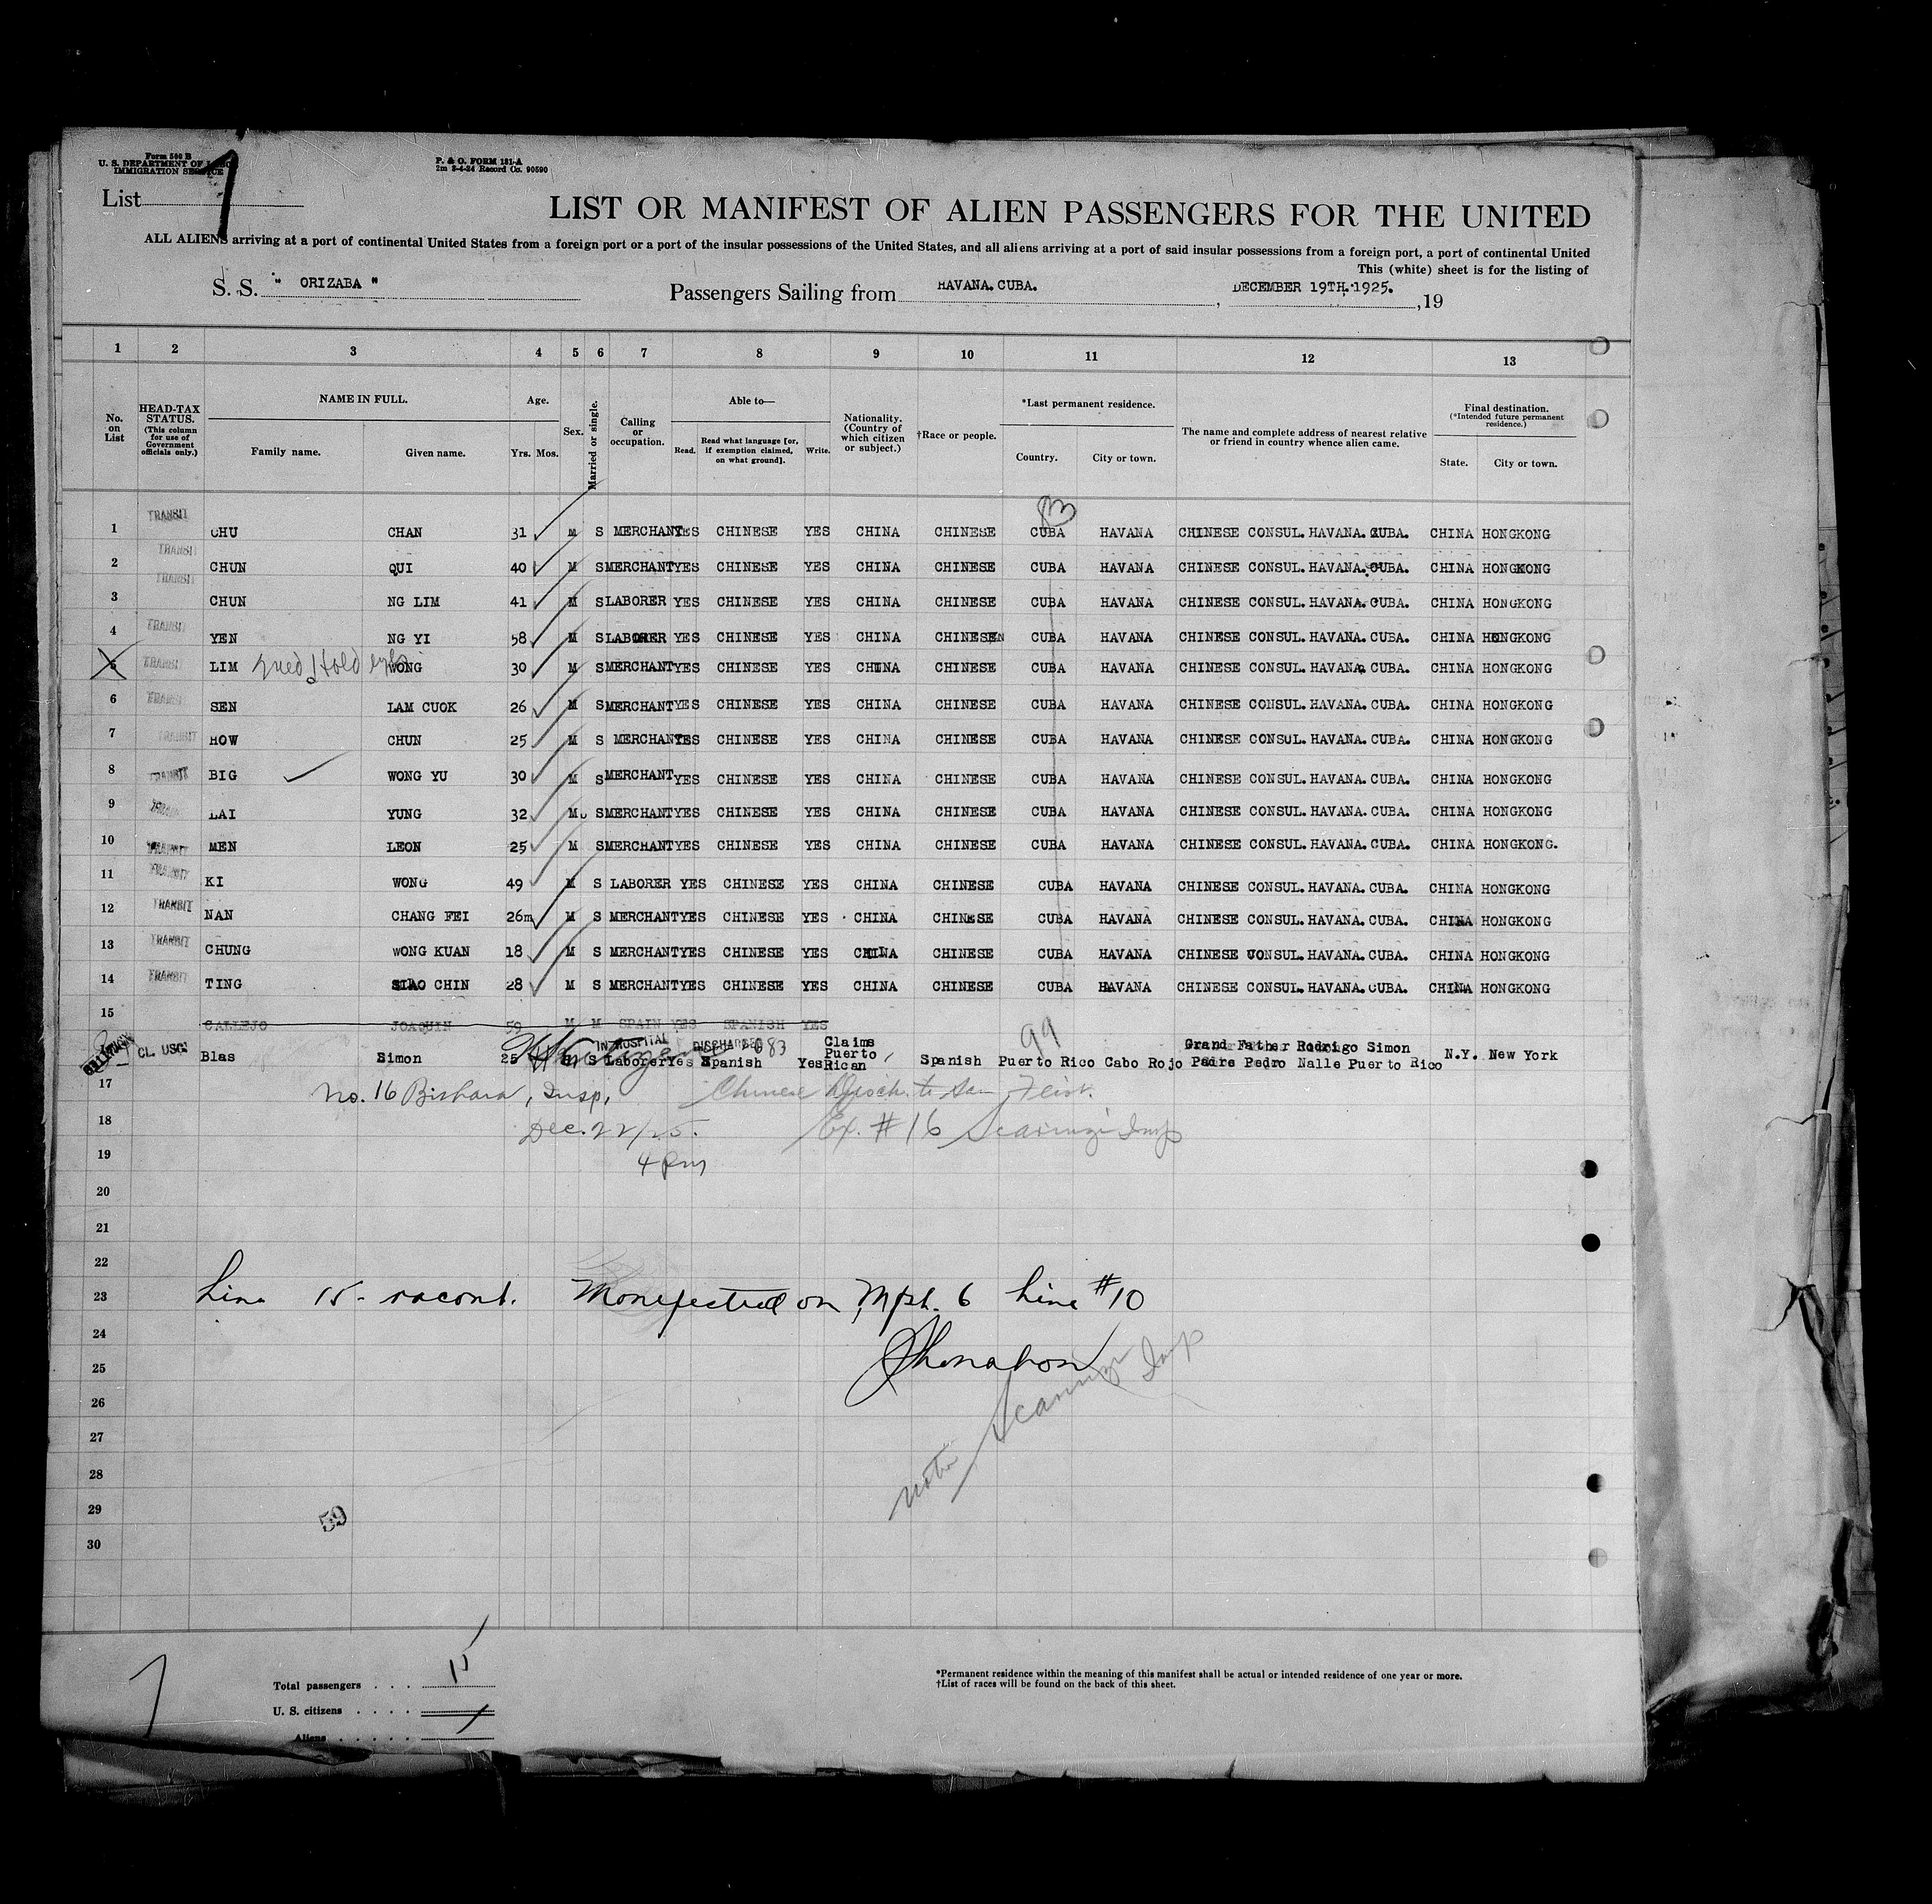 Form 500 B
U. S. DEPARTMENT OF LABOR
IMMIGRATION SERVICE
P. & O. FORM 131-A
2m 3-4-24 Record Co. 90590
List 7
LIST OR MANIFEST OF ALIEN PASSENGERS FOR THE UNITED
ALL ALIENS arriving at a port of continental United States from a foreign port or a port of the insular possessions of the United States, and all aliens arriving at a port of said insular possessions from a foreign port, a port of continental United
This (white) sheet is for the listing of
S. S. " ORIZABA " Passengers Sailing from HAVANA. CUBA. , DECEMBER 19TH. 1925. , 19
1 2 3 4 5 6 7 8 9 10 11 12 13
No. on List
HEAD-TAX STATUS. (This column for use of Government officials only.)
NAME IN FULL.
Family name. Given name.
Age.
Yrs. Mos.
Sex.
Married or single.
Calling or occupation.
Able to—
Read. Read what language [or, if exemption claimed, on what ground]. Write.
Nationality. (Country of which citizen or subject.)
†Race or people.
*Last permanent residence.
Country. City or town.
The name and complete address of nearest relative or friend in country whence alien came.
Final destination. (*Intended future permanent residence.)
State. City or town.
1 TRANSIT CHU CHAN 31 M S MERCHANT YES CHINESE YES CHINA CHINESE CUBA HAVANA CHINESE CONSUL. HAVANA. CUBA. CHINA HONGKONG
2 TRANSIT CHUN QUI 40 M S MERCHANT YES CHINESE YES CHINA CHINESE CUBA HAVANA CHINESE CONSUL. HAVANA. CUBA. CHINA HONGKONG
3 TRANSIT CHUN NG LIM 41 M S LABORER YES CHINESE YES CHINA CHINESE CUBA HAVANA CHINESE CONSUL. HAVANA. CUBA. CHINA HONGKONG
4 TRANSIT YEN NG YI 58 M S LABORER YES CHINESE YES CHINA CHINESE CUBA HAVANA CHINESE CONSUL. HAVANA. CUBA. CHINA HONGKONG
5 TRANSIT LIM Hold WONG 30 M S MERCHANT YES CHINESE YES CHINA CHINESE CUBA HAVANA CHINESE CONSUL. HAVANA. CUBA. CHINA HONGKONG
6 TRANSIT SEN LAM CUOK 26 M S MERCHANT YES CHINESE YES CHINA CHINESE CUBA HAVANA CHINESE CONSUL. HAVANA. CUBA. CHINA HONGKONG
7 TRANSIT HOW CHUN 25 M S MERCHANT YES CHINESE YES CHINA CHINESE CUBA HAVANA CHINESE CONSUL. HAVANA. CUBA. CHINA HONGKONG
8 TRANSIT BIG WONG YU 30 M S MERCHANT YES CHINESE YES CHINA CHINESE CUBA HAVANA CHINESE CONSUL. HAVANA. CUBA. CHINA HONGKONG
9 TRANSIT LAI YUNG 32 M S MERCHANT YES CHINESE YES CHINA CHINESE CUBA HAVANA CHINESE CONSUL. HAVANA. CUBA. CHINA HONGKONG
10 TRANSIT MEN LEON 25 M S MERCHANT YES CHINESE YES CHINA CHINESE CUBA HAVANA CHINESE CONSUL. HAVANA. CUBA. CHINA HONGKONG.
11 TRANSIT KI WONG 49 M S LABORER YES CHINESE YES CHINA CHINESE CUBA HAVANA CHINESE CONSUL. HAVANA. CUBA. CHINA HONGKONG
12 TRANSIT NAN CHANG FEI 26m M S MERCHANT YES CHINESE YES CHINA CHINESE CUBA HAVANA CHINESE CONSUL. HAVANA. CUBA. CHINA HONGKONG
13 TRANSIT CHUNG WONG KUAN 18 M S MERCHANT YES CHINESE YES CHINA CHINESE CUBA HAVANA CHINESE CONSUL. HAVANA. CUBA. CHINA HONGKONG
14 TRANSIT TING SIAO CHIN 28 M S MERCHANT YES CHINESE YES CHINA CHINESE CUBA HAVANA CHINESE CONSUL. HAVANA. CUBA. CHINA HONGKONG
15 CALLEJO JOAQUIN 59 M M SPAIN YES SPANISH YES
IN HOSPITAL DISCHARGED 99
CL. USC. Blas Simon 25 M S Laborer Yes Spanish Yes Claims Puerto Rican Spanish Puerto Rico Cabo Rojo Grand Father Rodrigo Simon Padre Pedro Nalle Puerto Rico N.Y. New York
17 No. 16 Bishara, Insp. Chinese
18 Dec. 22/25. Ex. #16
19 4 pm
20
21
22
23 Line 15 - vacant. Manifested on Mfst. 6 Line #10
24
25
26
27
28
29
30
59
7
Total passengers . . . 15
U. S. citizens . . . . 1
Aliens . . . . . .
*Permanent residence within the meaning of this manifest shall be actual or intended residence of one year or more.
†List of races will be found on the back of this sheet.